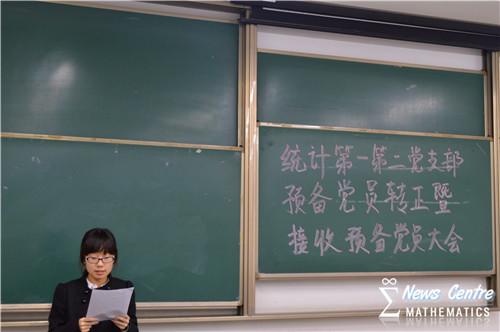 统计第一第二党支部
预备党员转正暨
接收预备党员大会
News Centre
MATHEMATICS